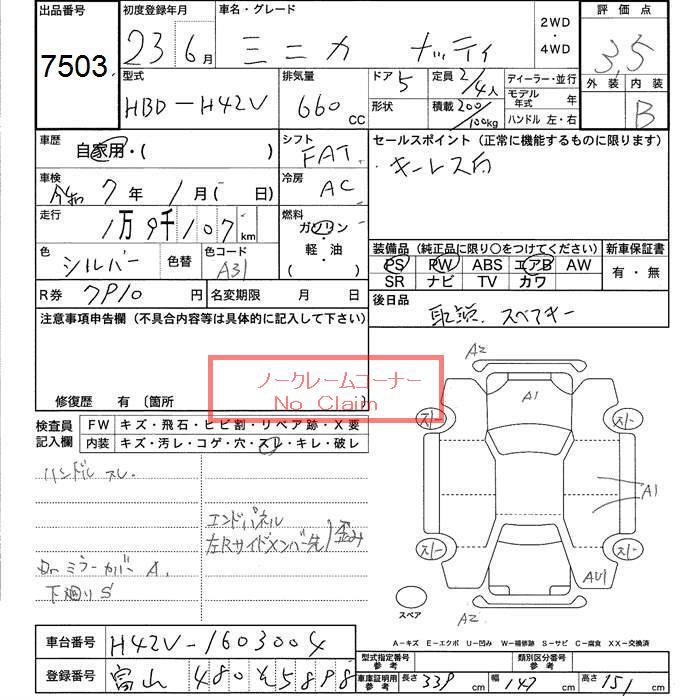 出品番号
7503
初度登録年月
23年 6月
車名・グレード
ミニカ ナッティ
2WD
・
4WD
評価点
3.5
外装 内装
B
型式
HBD-H42V
排気量
660 CC
ドア 5
形状
定員 2/4人
積載 200/100kg
ディーラー・並行
モデル年式 年
ハンドル 左・右
車歴
自家用・( )
シフト
FAT
セールスポイント (正常に機能するものに限ります)
・キーレス
車検
令和 7年 1月( 日)
冷房
AC
走行
1万9千107km
燃料
ガソリン
・
軽・油
( )
色
シルバー
色替
色コード
A31
装備品 (純正品に限り○をつけてください)
PS PW ABS エアB AW
SR ナビ TV カワ
新車保証書
有・無
R券 7910 円
名変期限 月 日
後日品
取説. スペアキー
注意事項申告欄 (不具合内容等は具体的に記入して下さい)
ノークレームコーナー
No Claim
修復歴 有 〔箇所
検査員記入欄
FW キズ・飛石・ヒビ割・リペア跡・X要
内装 キズ・汚レ・コゲ・穴・スレ・キレ・破レ
ハンドル スレ.
エンドパネル
左Rサイドメンバー先 歪み
Drミラーカバー A.
下廻り S
A2
A1
A1
AU1
A2
スペア
A-キズ E-エクボ U-凹み W-補修跡 S-サビ C-腐食 XX-交換済
車台番号 H42V-1603004
登録番号 富山 480 そ 5898
型式指定番号参考
類別区分番号参考
車庫証明用参考 長さ 339 cm 幅 147 cm 高さ 151 cm